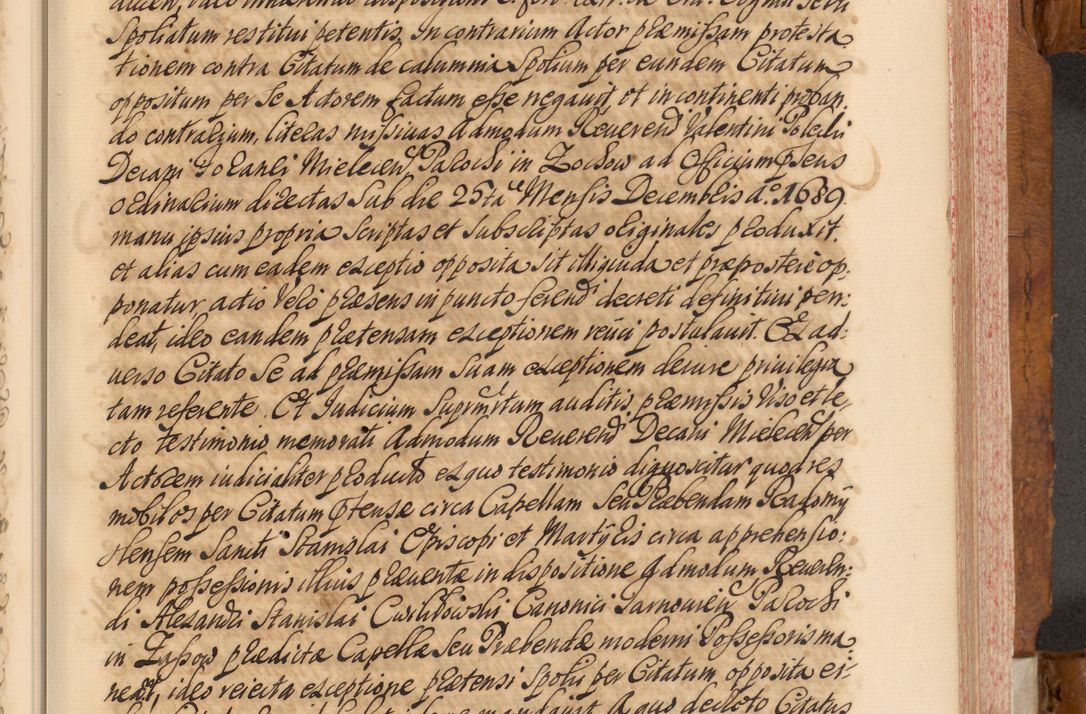 Spoliatum restitui petentis. In contrarium Actor præmissam protesta
tionem contra Citatum de calumnia Spolium per eundem Citatum
oppositum per Se Actorem factum esse negavit, et in continenti proban
do contrarium, Literas missivas Admodum Reverend Valentini
Decani Foranei Mielecen Parochi in Zochow ad Officium pñens
ordinarium directas Sub die 25ta Mensis Decembris A° 1689
manu ipsius propria Scriptas et Subscriptas originales produxit.
et alias cum eadem exceptio opposita sit illiquida et præpostere op-
ponatur, actio vero præsens in puncto ferend decreti definitivi pen-
deat, ideo eandem prætensam exceptionem reiici postulavit. Ex ad-
verso Citato Se ad præmissam Suam exceptionem
tam referente. Et Judicium Supræmitum auditis præmissis viso et le-
cto testimonio memorati Admodum Reverend Decani Mielecen per
Actorem iudicialiter producto ex quo testimonio dignoscitur quod res
mobiles per Citatum prætensæ circa Capellam Seu Præbendam Radomÿ
slensem Sancti Stanislai Episcopi et Martÿris circa apprehensio-
nem possessionis illius præventæ in dispositione Admodum Reveren-
di Alexandri Stanislai Canonici Tarnovien Parochi
in Zassow prædictæ Capellæ Seu Præbendæ moderni Possessoris ma
neat, ideo reiecta exceptione prætensi Spolii per Citatum opposita ei-
A quo decreto Citatus